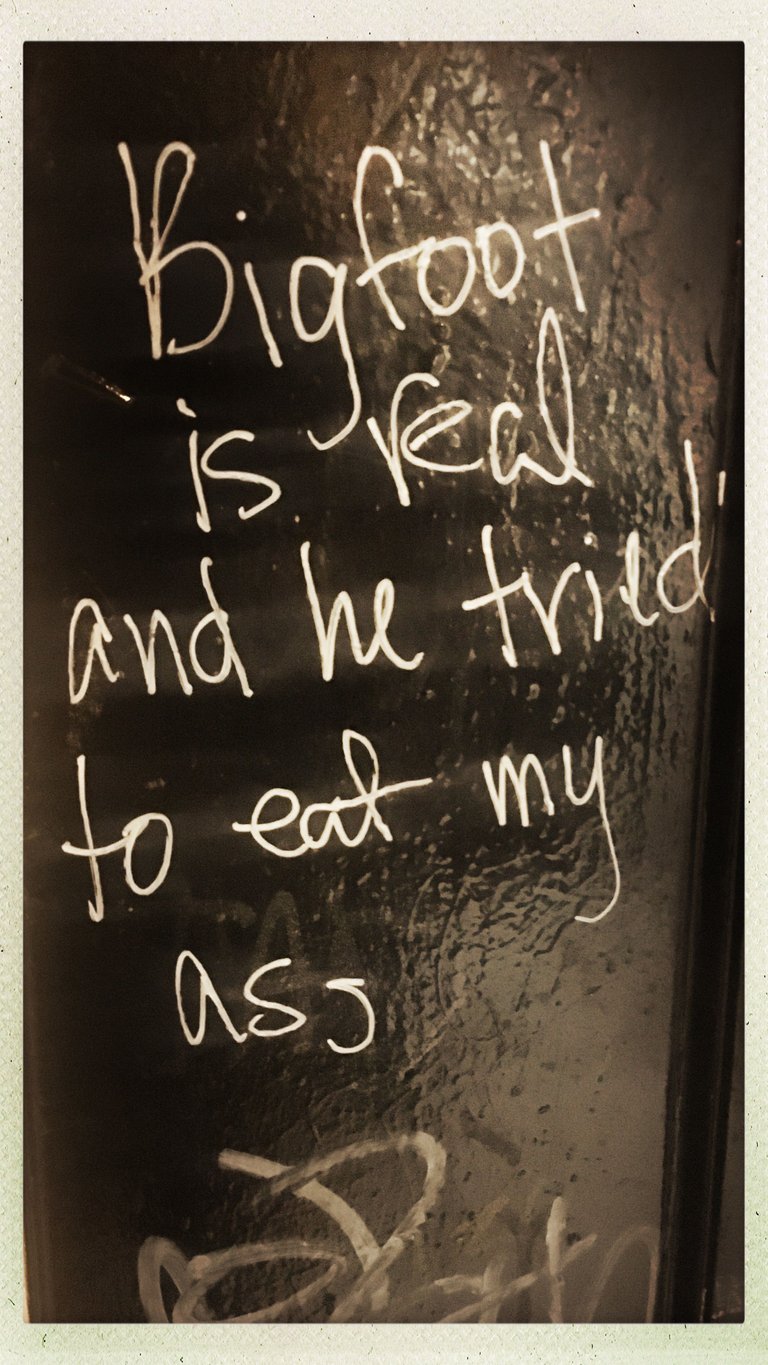 Bigfoot
is real
and he tried
to eat my
ass